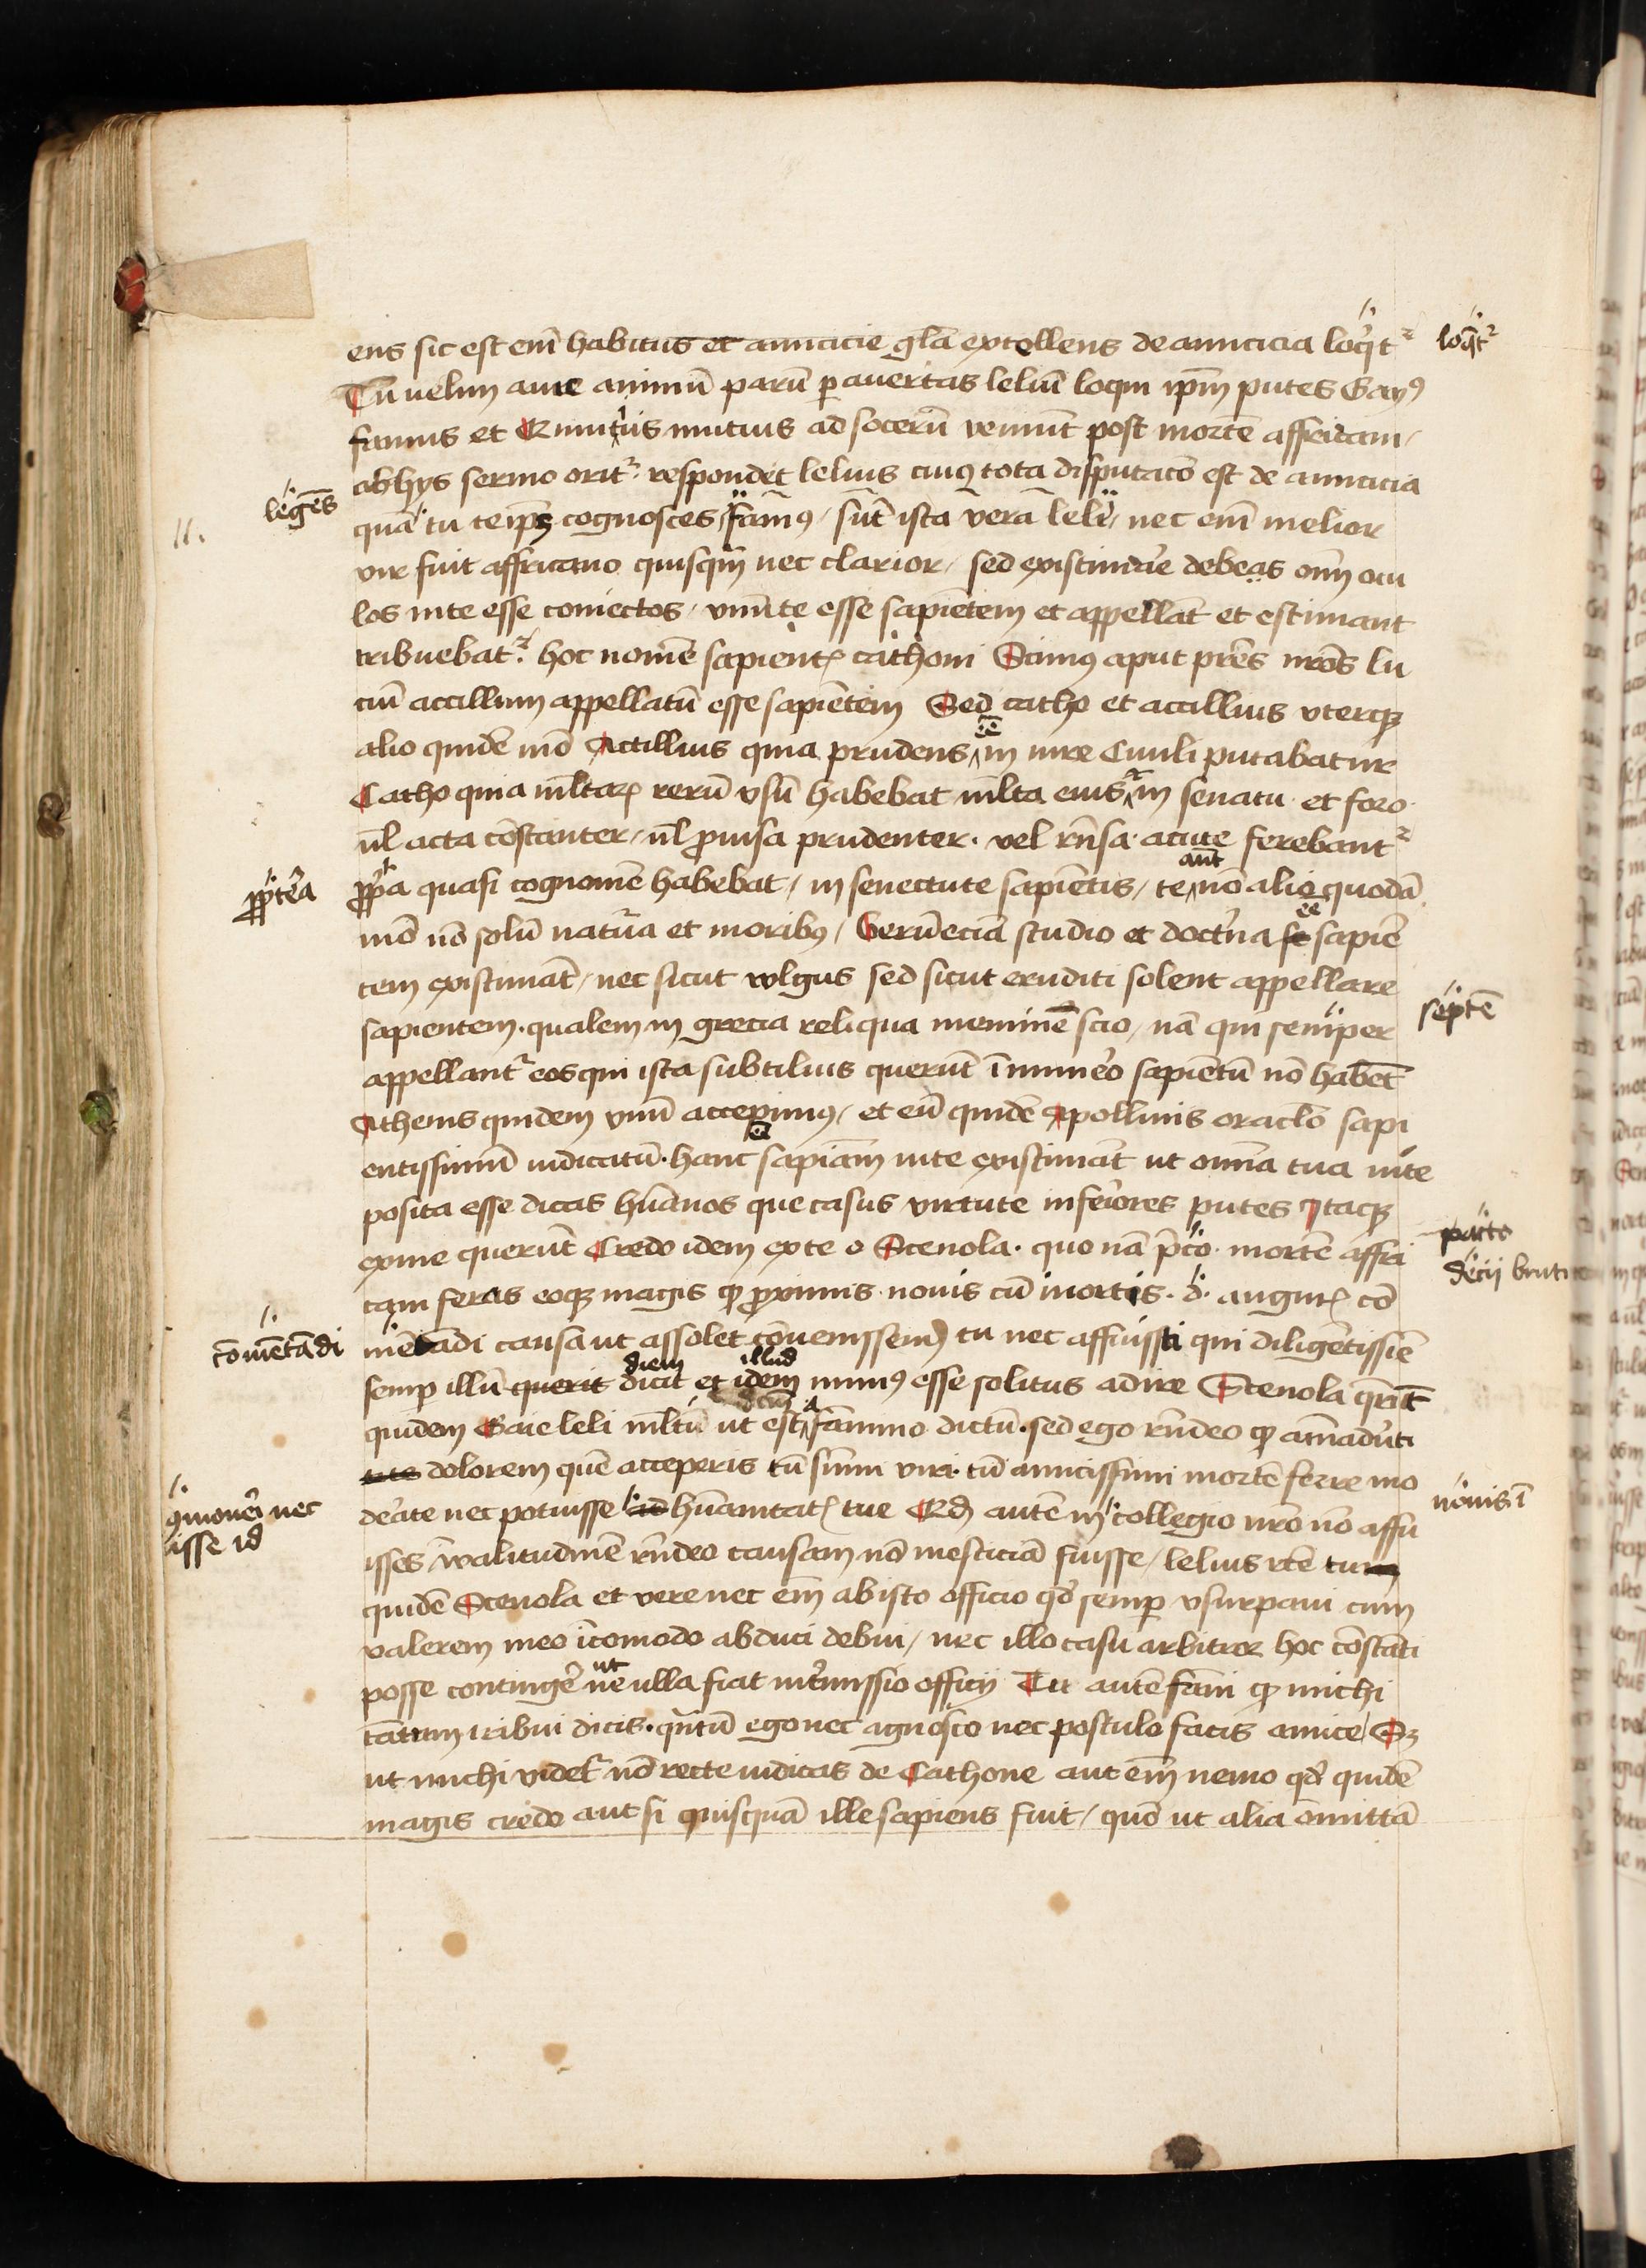 ens sic est em̄ habitus et amicicie gl̄a excellens de amicicia loq̄t᷑ loq̄t᷑
Tu uelim a me animū parū p auertas leliū loqui ip̄m putes Gayꝰ
fannius et Quintus mutius ad socerū veniunt post mortē affricani
ab hys sermo orit᷑ respondet lelius cuiꝰ tota disputacō est de amicicia
legēs quā tu te ip̄m cognosces / fāniꝰ / sūt ista vera leli / nec em̄ melior
vir fuit affricano quisq̄m nec clarior / sed existimāre debeas om̄ ocu
los in te esse coniectos / vnū te esse sapiētem et appellāt et estimant
tribuebat᷑ hoc nomē sapientꝭ cathoni Scimꝰ aput p̄res nr̄os lu
ciū accillium appellatū esse sapiētem Sed catho et accillius vterqꝫ
alio quidē mō Actillius quia prudens eē in iure Ciuili putabatur
Catho quia m̄ltarꝝ rerū vsū habebat m̄lta eius in senatu et foro
ul̄ acta cōstanter / ul̄ p̄uisa prudenter · vel rn̄sa acute ferebant᷑
ꝓpterea ꝓp̄a quasi cognomē habebat / in senectute sapiētis / te aut nō alio quodā
mō nō solū natura et moribꝰ / Verū eciā studio et doctr̄ina ee sapiē
tem existimāt / nec sicut wlgus sed sicut eruditi solent appellare
sapientem · qualem in grecia reliqua neminē scio / nā qui semper septē
appellant᷑ eos qui ista subtilius querūt ī numēo sapiētū nō habēt
Athenis quidem vnū accepimꝰ / et eū quidē Apollinis oraclo sapi
entissimū iudicatū · hanc sapiām in te existimāt ut omīa tua in te
posita esse dicas hūanos que casus virtute inferiores putes Itaqꝫ
ex me querūt Credo idem ex te o Sceuola · quo nā p̄cto mortē affri pacto
cani feras eoqꝫ magis qꝫ proximis nonis cū in ortis · d · augurꝭ cō decij bruti
cōmētādi mētādi causa ut assolet cōuenissemꝰ tu nec affuisti qui diligētissie
semp illū querit diem dicit et idem illud munꝰ esse solitus adire Sceuola querit
quidem Gaie leli m̄ltū ut est a fānnio dictū · sed ego rn̄deo qꝫ aīmaduti
dolorem quē acceperis tū sum̄i viri tū amicissimi mortē ferre mo
ꝯmoueri nec deāte nec potuisse hūanitatꝭ tue Qd autē in collegio nr̄o nō affu nonis ī
isse id isses walitudinē rn̄deo causam nō mesticiā fuisse / lelius rc̄te tu
quidē Sceuola et vere nec em̄ ab isto officio qd semp vsurpaui cum
valerem meo īcomodo abduci debui / nec illo casu arbitror hoc cōstāti
posse contingē̄ ut ne ulla fiat int̄missio officij Tu autē fāni qꝫ michi
tantum tribui dicis · quātū ego nec agnosco nec postulo facis amice Sꝫ
ut michi videt᷑ nō recte iudicas de Cathone aut em̄ nemo qd quidē
magis credo aut si quisquā ille sapiens fuit / quō ut alia omittā